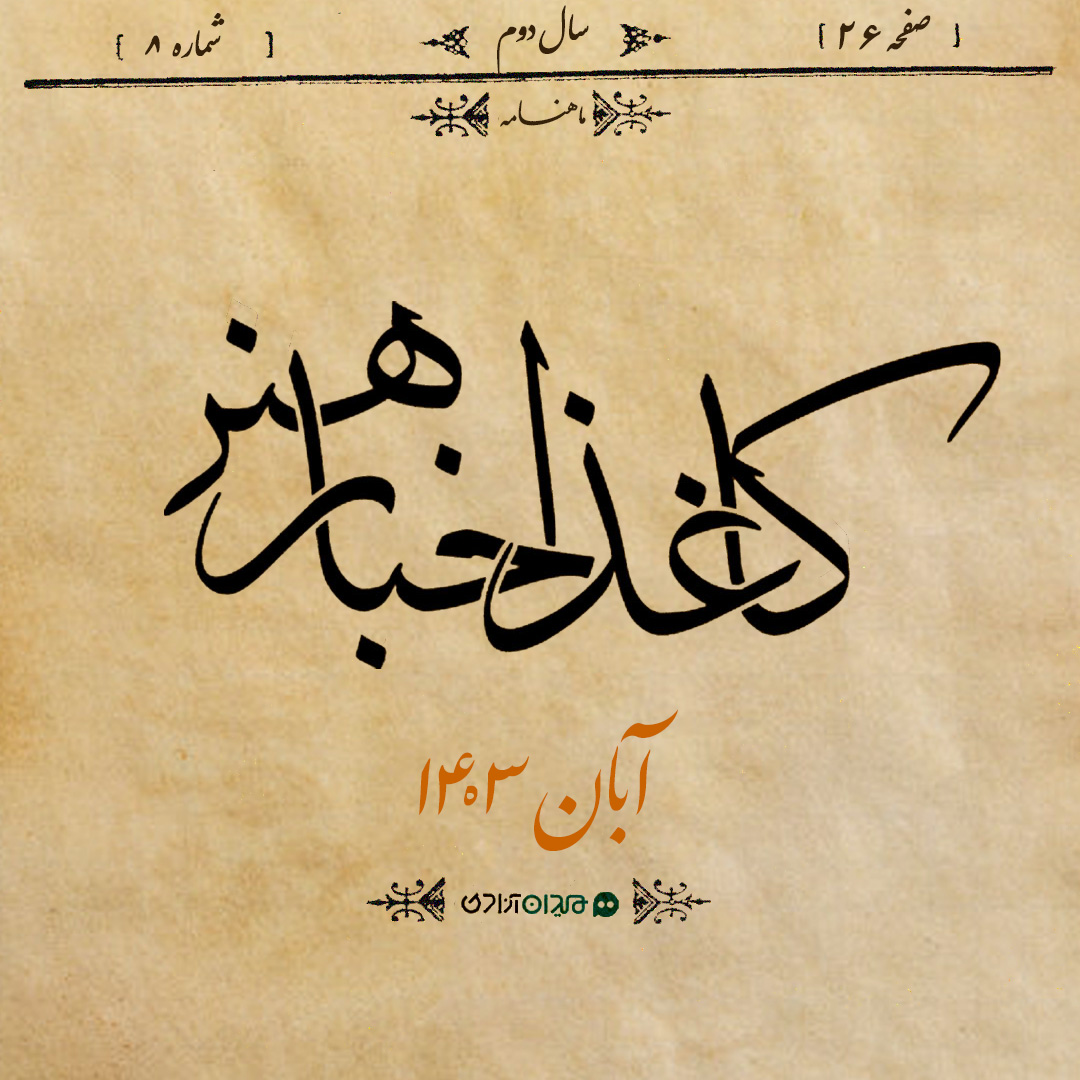 [ صفحه ۲۶ ] سال دوم [ شماره ۸ ]
ماهنامه
کاغذ اخبار هنر
آبان ۱۴۰۳
میدان آزادی